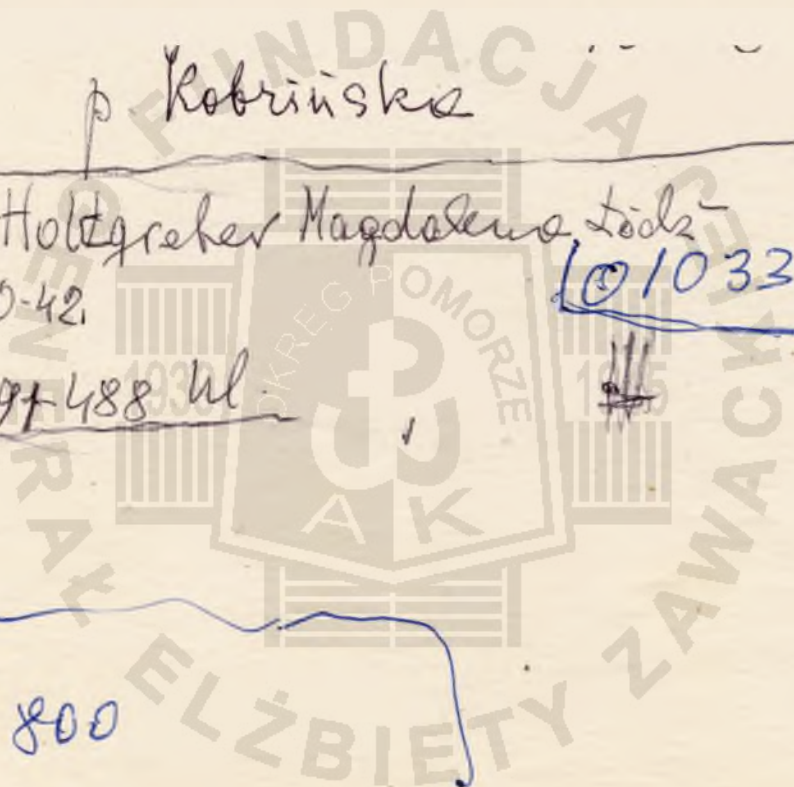 p. Kobrińska
Holtzgreber Magdalena Łódź
0-42.
101033
97-488 Wl.
800
FUNDACJA GENERAŁ ELŻBIETY ZAWACKIEJ
OKRĘG POMORZE
1939 1945
AK